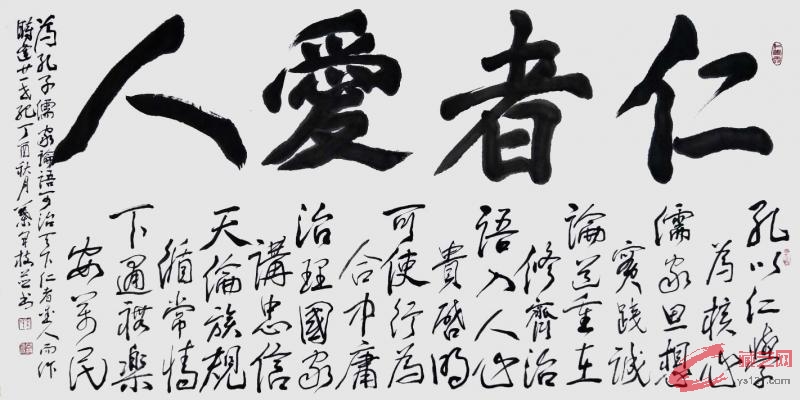 仁者愛人
孔以仁學
為核心
儒家思想
實踐誠
論道重在
修齊治
語入人心
貴啓明
可使行為
合中庸
治理國家
講忠信
天倫族規
循常情
下通禮樂
安萬民
為孔子儒家論語可治天下仁者愛人而作
時逢廿一世紀丁酉秋月
ys1